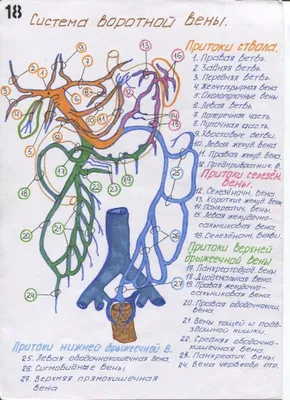 18
Система воротной вены.
Притоки ствола.
1. Правая ветвь.
2. Задняя ветвь.
3. Передняя ветвь.
4. Желчепузырная вена
5. Околопупочные вены
6. Левая ветвь.
7. Поперечная часть.
8. Пупочная часть.
9. Хвостовые ветви.
10. Левая желуд. вена
11. Правая желуд. вена.
12. Предпривратник. в.
Притоки селезён.
вены.
12. Селезёночн. вена.
13. Короткие желуд. вены
14. Панкреатич. вены.
15. Левая желудочно-
сальниковая вена
16. Селезёночн. ветви.
Притоки верхней
брыжеечной вены
17. Панкреатодуод. вены
18. Дуоденальная вена.
19. Правая желудочно-
сальниковая вена.
20. Правая ободочнокиш.
вена.
21. Вены тощей и подвз-
дошной кишки.
22. Средняя ободочно-
кишечная вена.
23. Панкреатич. вены.
24. Вена червеобр. отр.
Притоки нижней брыжеечной в.
25. Левая ободочнокишечная вена.
26. Сигмовидные вены.
27. Верхняя прямокишечная
вена